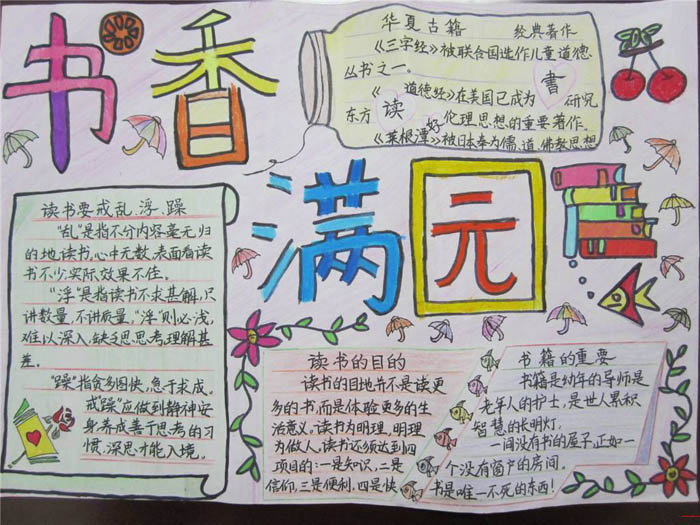 书香
满园
华夏古籍 经典著作
《三字经》被联合国选作儿童道德
丛书之一。
《道德经》在美国已成为 研究
东方 伦理思想的重要著作。
《菜根谭》被日本奉为儒、道、佛教思想
好
读
書
读书要戒乱、浮、躁
“乱”是指不分内容毫无归
的地读书,心中无数,表面看读
书不少实际效果不佳。
“浮”是指读书不求甚解,只
讲数量,不讲质量,“浮”则必浅,
难以深入,缺乏思思考,理解甚
差。
“躁”指贪多图快,急于求成。
戒躁”应做到静神安
身养成善于思考的习
惯,深思才能入境。
读书的目的
读书的目地并不是读更
多的书,而是体验更多的生
活意义,读书为明理,明理
为做人,读书还须达到四
项目的:一是知识,二是
信仰,三是便利,四是快
书籍的重要
书籍是幼年的导师是
老年人的护士,是世人累积
智慧的长明灯,
一间没有书的屋子,正如一
个没有窗户的房间。
书是唯一不死的东西!